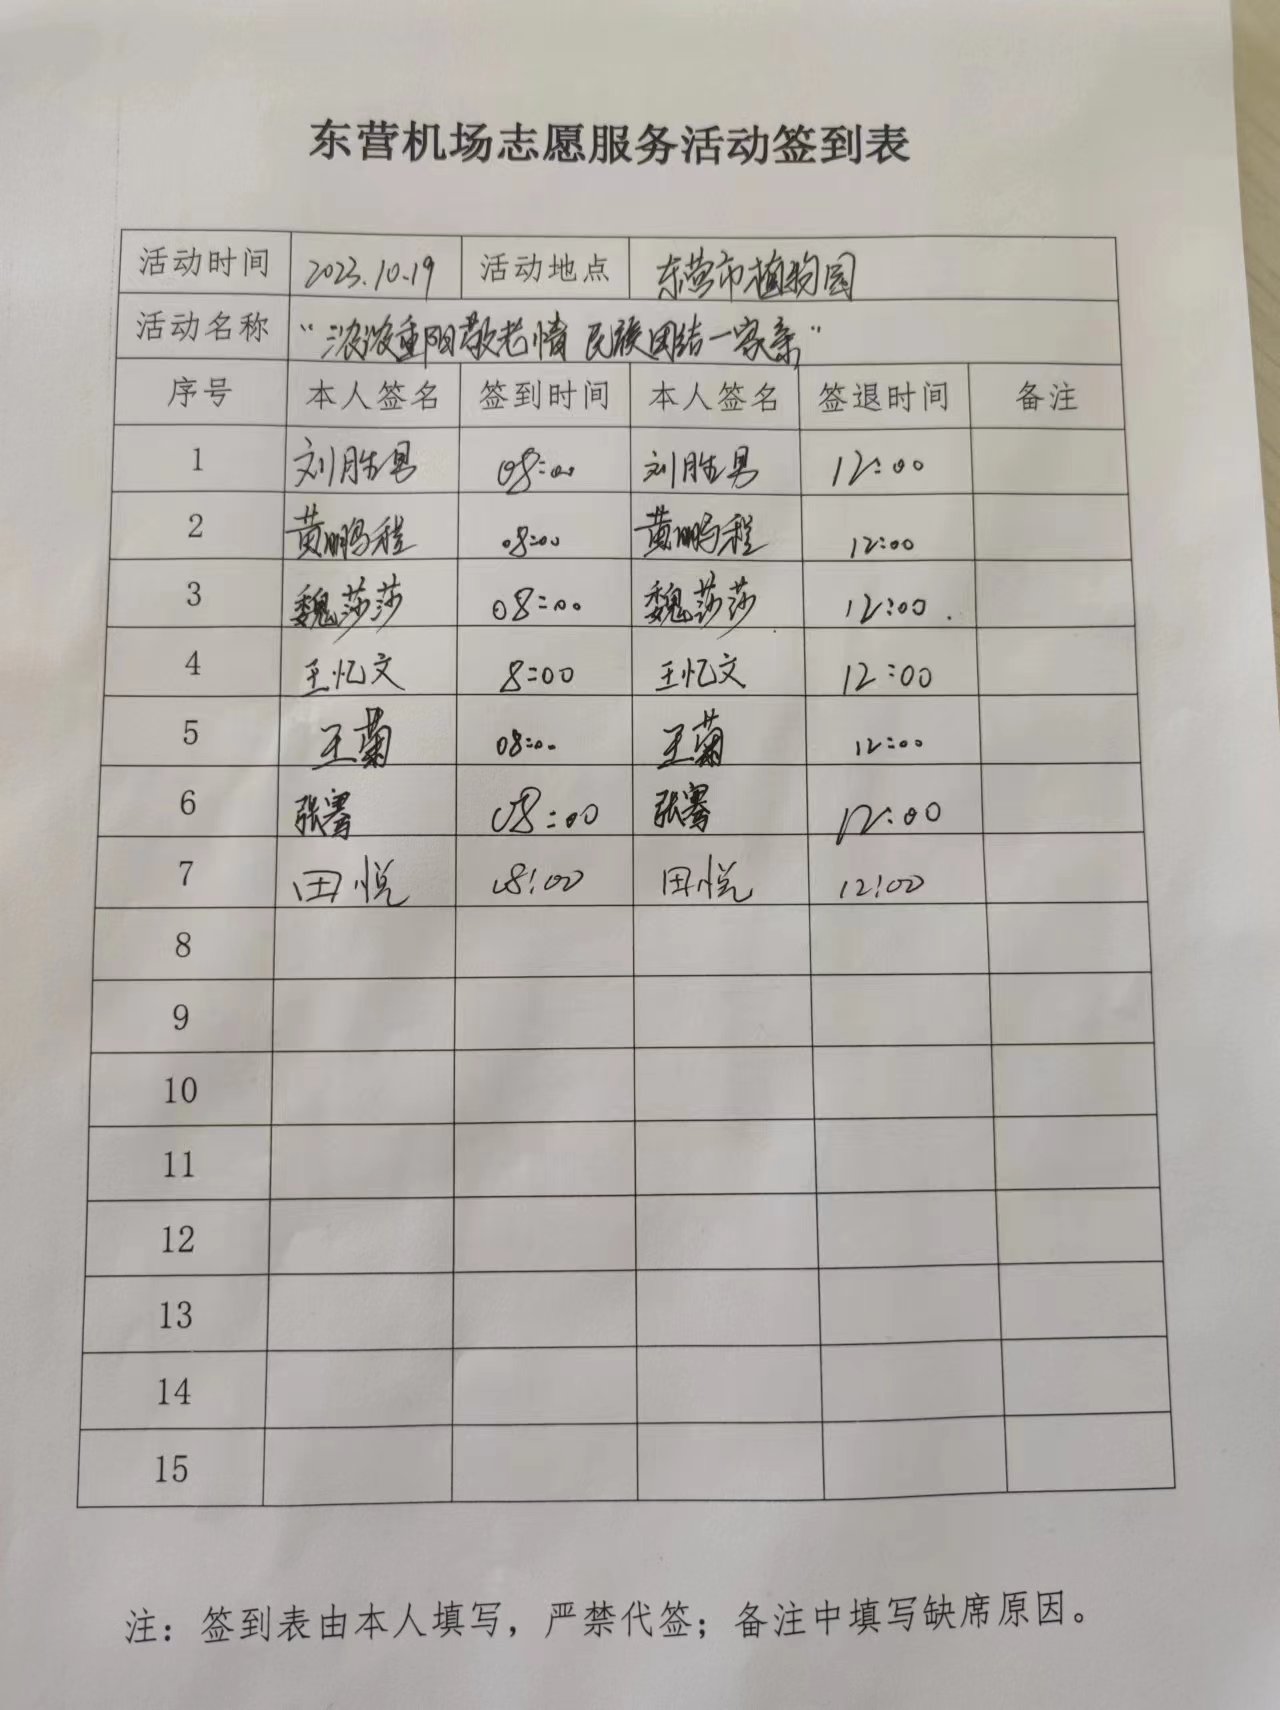 东营机场志愿服务活动签到表
活动时间 2023.10.19 活动地点 东营市植物园
活动名称 “浓浓重阳敬老情 民族团结一家亲”
序号 本人签名 签到时间 本人签名 签退时间 备注
1 刘胜男 08:00 刘胜男 12:00
2 黄鹏程 08:00 黄鹏程 12:00
3 魏莎莎 08:00 魏莎莎 12:00.
4 王忆文 8:00 王忆文 12:00
5 王菊 08:00 王菊 12:00
6 张骞 08:00 张骞 12:00
7 田悦 08:00 田悦 12:00
8
9
10
11
12
13
14
15
注：签到表由本人填写，严禁代签；备注中填写缺席原因。